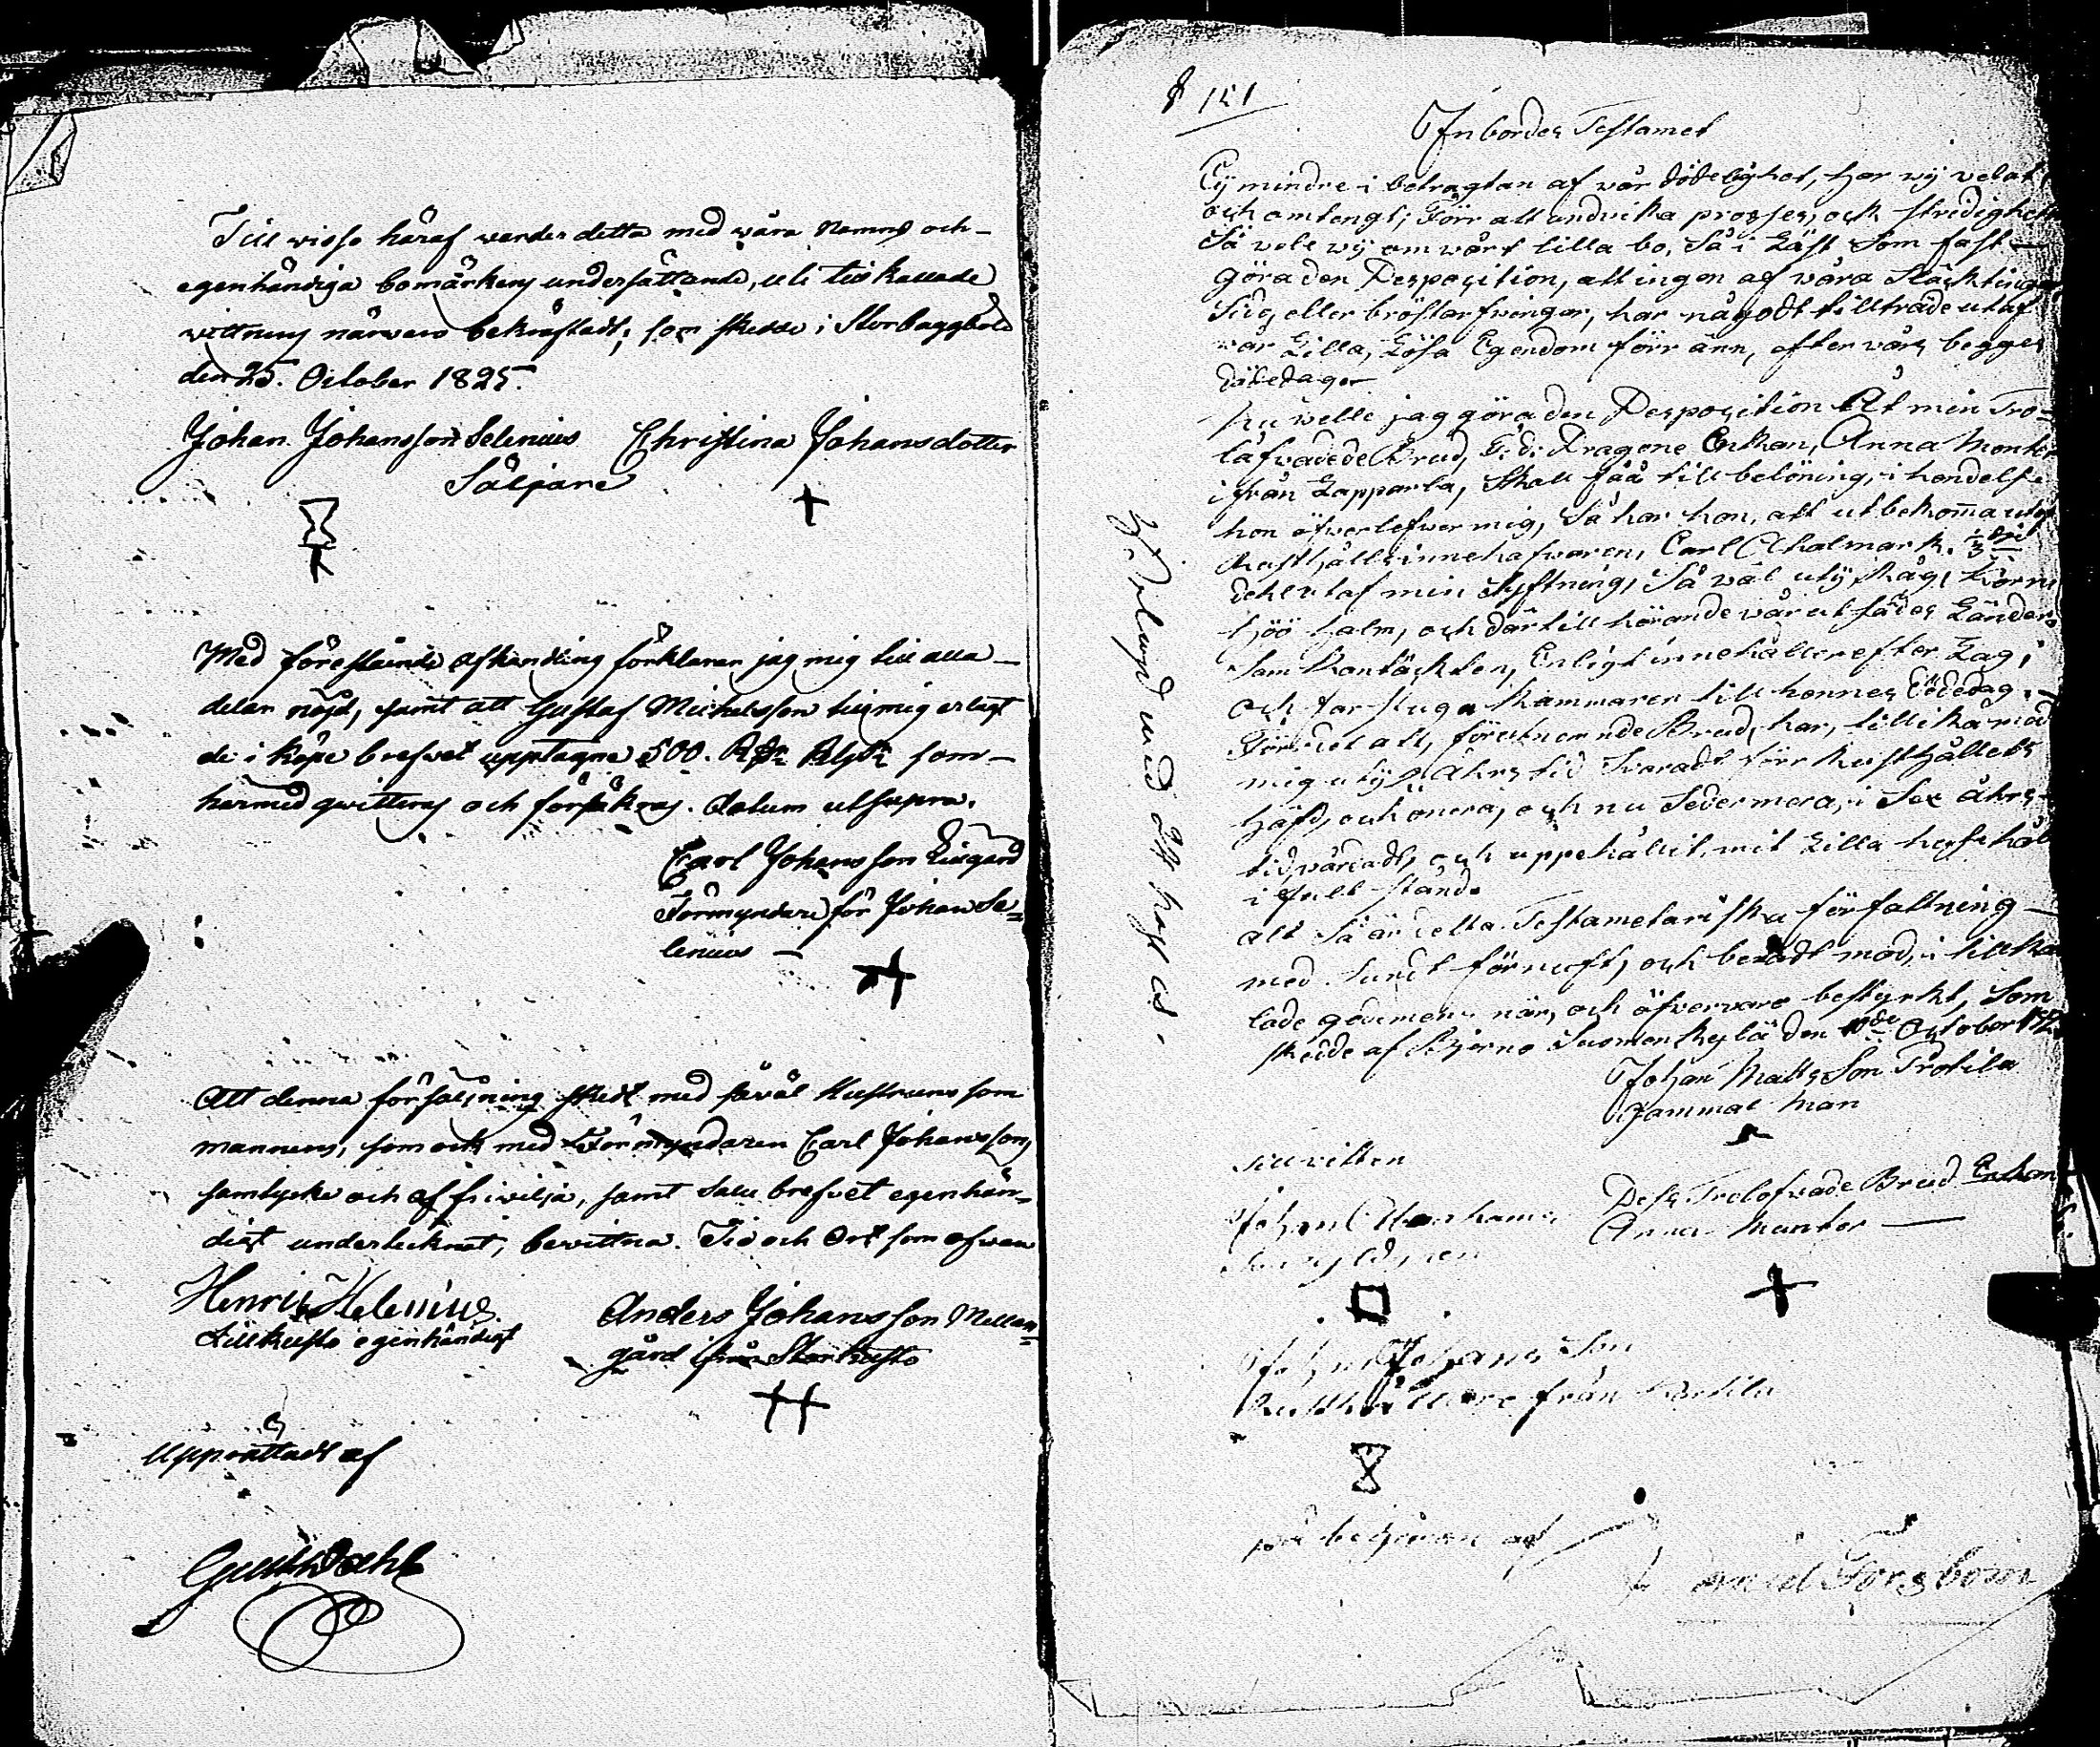 Till visso häraf varder detta med våra Namns och-
egenhändiga bomärkens undersättande, uti tillkallade
vittnens närvaro bekräftadt; som skedde i Storbaggböle
den 25. October 1825.
Johan Johansson Selenius Christina Johansdotter
Säljare
Med förestående afhandling förklarar jag mig till alla -
delar nöjd, samt att Gustaf Michelsson till mig erlagt
de i köpe brefvet upptagne 500. R:dr R:gds som -
härmed qvitteras och försäkras. datum utsupra.
Carl Johansson Lillgård
Förmyndare för Johan Se=
lenius -
Att denna försäljning skedt med såväl Hustruns som
mannens, som ock med Förmyndaren Carl Johanssons
samtycke och af fri vilja, samt Salu brefvet egenhän=
digt undertecknat, bevittna. Tid och Ort som ofvan
Henric Helenius
Lillkusto egenhändigt
Anders Johansson Mellan=
gård från Storkusto
Upprättadt af
§ 151
Inbördes Testamet
Ey mindre i betragtan af vår dödelighet, har wy velat
och omtengt; Förr att undvika prosses, och stridighet
Så vele wy om vårt lilla bo, Så i Läst Som fast -
göra den Desposition, att ingen af våra Släcktingar
Sido eller bröstarfvingar, har någodt tillträde utaf
vår Lilla, Lösa Egendom förr änn, efter vårs begges
dödedagar
Nu welle jag göra den Desposition Åt min Tro-
låfvadede Brud, F. d. Dragone Enkan, Anna Monter
ifrån Lapparla, Skall fåå till belöning, i hendelse
hon öfverlefver mig, Så har hon, att utbekoma utaf
Rusthållsinnehafvaren, Carl Ahalmark. 1/3
delen af min Syftning, Så väl uty Råg, Korn
Höö halm, och där till hörande vårutsädes Länder
Sam Kontäckten, Enligt innehåller efter Lag,
och far stuga kammaren till hennes Dödedag. -
Förr det att, förutnemnde Brud, har, tillika med
mig uty åhrs tid Svaradt förr Rusthållets
häfd, och onera, och nu Sedermera, i Sex åhrs-
tid, vårdadt, och uppehållit, mit Lilla hushåll
i fullt stånd.
alt Så är detta Testametariska författning -
med Sundt förnuft, och berådt mod, i tillkal
lade godemens när, och öfvervaro bestyrkt, Som
skedde af Bjerno Suomenkylä den 10de October
Johan Matts Son Protila
Gammal Man
Till vitten
Dess Trolofvade Brud Enkan
Anna Munter -
Johan Abrahams
Johan Johans Son
Rusthållare från
på begäran af
Forsbom